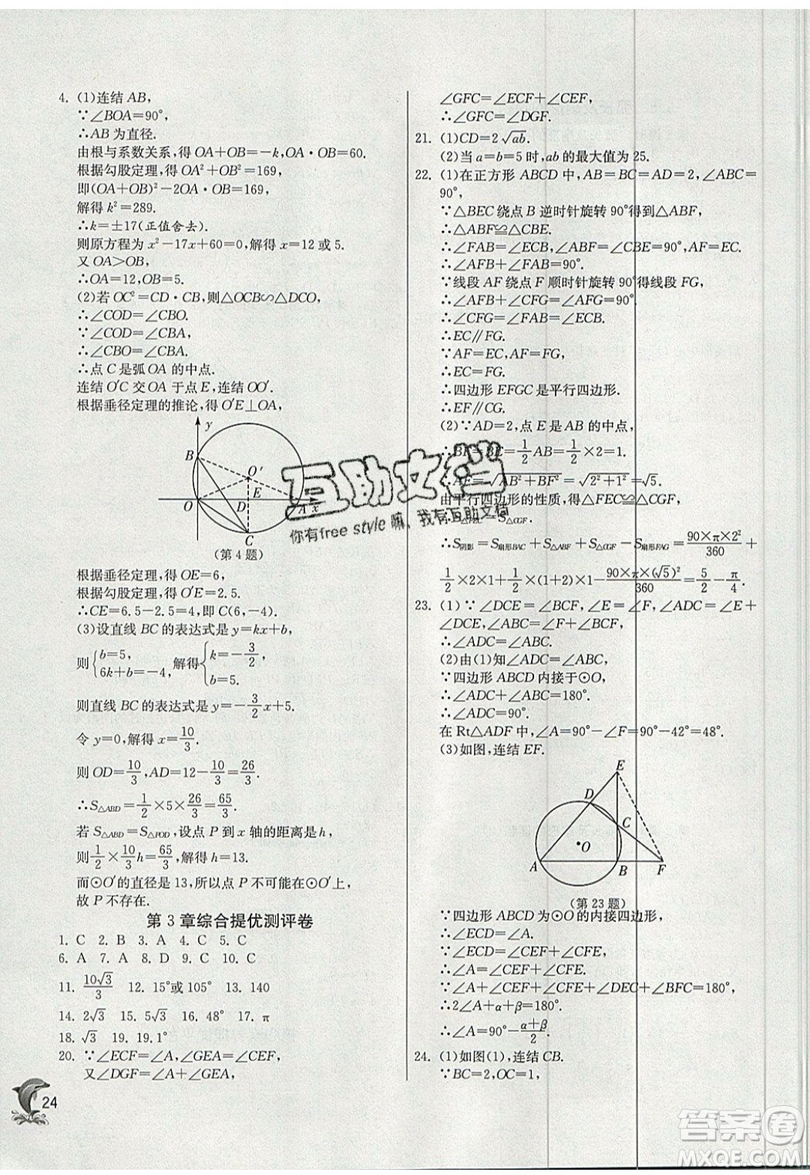 4. (1)连结 AB,
∵∠BOA=90°,
∴AB 为直径.
由根与系数关系,得 OA+OB=-k,OA×OB=60.
根据勾股定理,得 OA²+OB²=169,
即(OA+OB)²-2OA·OB=169,
解得 k²=289.
∴k=±17(正值舍去).
则原方程为 x²-17x+60=0,解得 x=12 或 5.
又 OA>OB,
∴OA=12,OB=5.
(2)若 OC²=CD·CB,则△OCB∽△DCO,
∴∠COD=∠CBO.
又∵∠COD=∠CBA,
∴∠CBO=∠CBA.
∴点 C 是弧 OA 的中点.
连结 O′C 交 OA 于点 E,连结 OO′.
根据垂径定理的推论,得 O′E⊥OA,
y
B
O′
E
O
D
A
x
C
(第 4 题)
根据垂径定理,得 OE=6,
根据勾股定理,得 O′E=2.5,
∴CE=6.5-2.5=4,即 C(6,-4).
(3)设直线 BC 的表达式是 y=kx+b,
则{b=5, 6k+b=-4, 解得{k=-3/2, b=5.
则直线 BC 的表达式是 y=-3/2x+5.
令 y=0,解得 x=10/3,
则 OD=10/3,AD=12-10/3=26/3.
∴S△ABD=1/2×5×26/3=65/3.
若 S△ABD=S△POD,设点 P 到 x 轴的距离是 h,
则1/2×10/3h=65/3,解得 h=13.
而⊙O′的直径是 13,所以点 P 不可能在⊙O′上,
故 P 不存在.
第 3 章综合提优测评卷
1. C 2. D 3. C 4. D 5. C
6. A 7. A 8. D 9. C 10. B
11. 10√3/3 12. 15°或 105° 13. 140
14. 2√3 15. 4√3 16. 48° 17. π
18. √3 19. 19.1°
20. ∵∠ECF=∠A,∠GEA=∠CEF,
又∠DGF=∠A+∠GEA,
∠GFC=∠ECF+∠CEF,
∴∠GFC=∠DGF.
21. (1)CD=2√ab.
(2)当 a=b=5 时,ab 的最大值为 25.
22. (1)在正方形 ABCD 中,AB=BC=AD=2,∠ABC=
90°,
∵△BEC 绕点 B 逆时针旋转 90°得到△ABF,
∴△ABF≌△CBE.
∴∠FAB=∠ECB,∠ABF=∠CBE=90°,AF=EC.
∴∠AFB+∠FAB=90°.
∵线段 AF 绕点 F 顺时针旋转 90°得线段 FG,
∴∠AFB+∠CFG=∠AFG=90°.
∴∠CFG=∠FAB=∠ECB.
∴EC∥FG.
∵AF=EC,AF=FG,
∴EC=FG.
∴四边形 EFGC 是平行四边形.
∴EF∥CG.
(2)∵AD=2,点 E 是 AB 的中点,
∴FB=BE=1/2AB=1/2×2=1.
∴AF=√AB²+BF²=√2²+1²=√5.
由平行四边形的性质,得△FEC≌△CGF.
=S△CGF.
∴S阴影=S扇形BAC+S△ABF+S△CGF-S扇形FAG=90×π×2²/360+
1/2×2×1+1/2×(1+2)×1-90×π×(√5)²/360=5/2-π/4.
23. (1)∵∠DCE=∠BCF,∠E=∠F,∠ADC=∠E+
∠DCE,∠ABC=∠F+∠BCF,
∴∠ADC=∠ABC.
(2)由(1)知∠ADC=∠ABC,
∵四边形 ABCD 内接于⊙O,
∴∠ADC+∠ABC=180°.
∴∠ADC=90°.
在 Rt△ADF 中,∠A=90°-∠F=90°-42°=48°.
(3)如图,连结 EF.
E
D
C
O
A
B
F
(第 23 题)
∵四边形 ABCD 为⊙O 的内接四边形,
∴∠ECD=∠A.
∵∠ECD=∠CEF+∠CFE,
∴∠A=∠CEF+∠CFE.
∵∠A+∠CEF+∠CFE+∠DEC+∠BFC=180°,
∴2∠A+α+β=180°.
∴∠A=90°-α+β/2.
24. (1)如图(1),连结 CB.
∵BC=2,OC=1,
24
互助文档
你有free style嘛,我有互助文档
答案圈
MXQE.COM